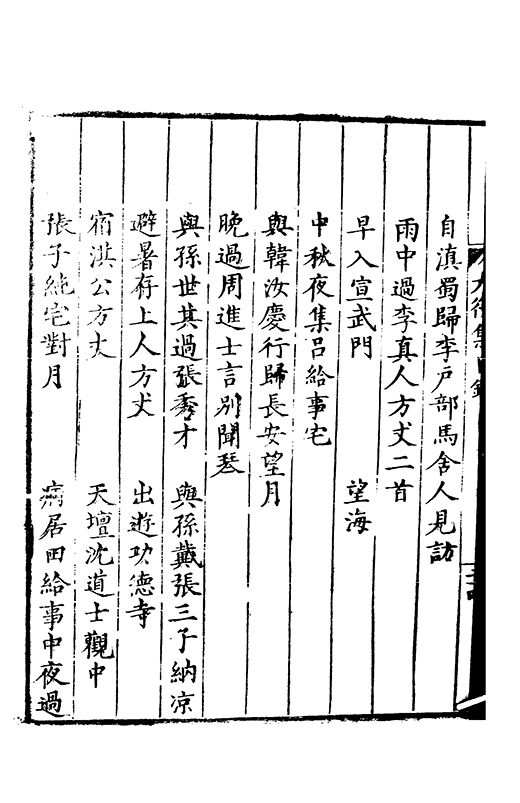 大復集目錄
自滇蜀歸李戶部馬舍人見訪
雨中過李真人方丈二首
早入宣武門　望海
中秋夜集呂給事宅
與韓汝慶行歸長安望月
晚過周進士言別聞琴
與孫世其過張秀才　與孫戴張三子納凉
避暑存上人方丈　出遊功德寺
宿淇公方丈　天壇沈道士觀中
張子純宅對月　病居田給事中夜過